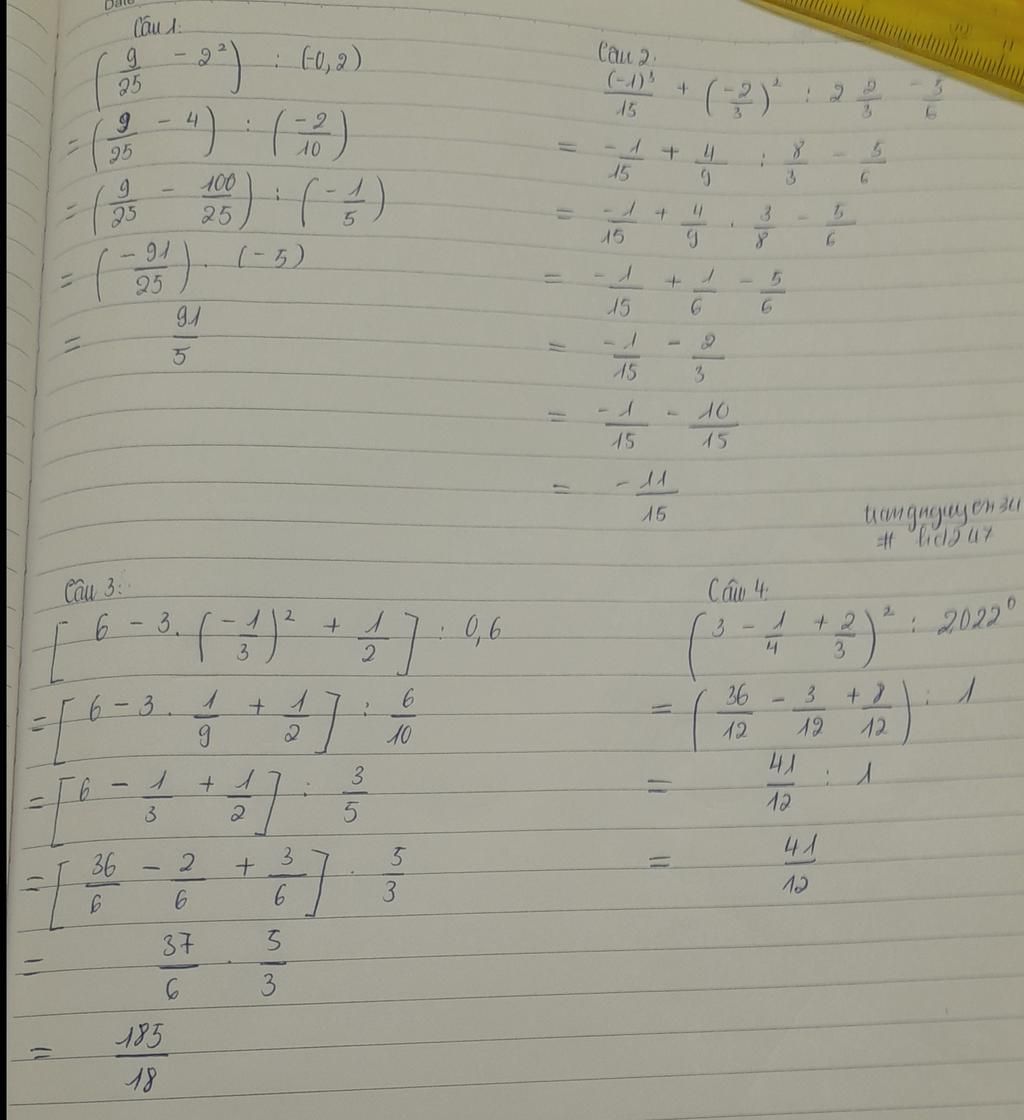 Câu 1:
(9/25 - 2²) : (-0,2)
= (9/25 - 4) : (-2/10)
= (9/25 - 100/25) : (-1/5)
= (-91/25) . (-5)
= 91/5
Câu 2:
(-1)³/15 + (-2/3)² : 2 2/3 - 5/6
= -1/15 + 4/9 : 8/3 - 5/6
= -1/15 + 4/9 . 3/8 - 5/6
= -1/15 + 1/6 - 5/6
= -1/15 - 2/3
= -1/15 - 10/15
= -11/15
Câu 3:
[6 - 3. (-1/3)² + 1/2] : 0,6
= [6 - 3 . 1/9 + 1/2] : 6/10
= [6 - 1/3 + 1/2] : 3/5
= [36/6 - 2/6 + 3/6] . 5/3
= 37/6 . 5/3
= 185/18
Câu 4:
(3 - 1/4 + 2/3)² : 2022⁰
= (36/12 - 3/12 + 8/12) : 1
= 41/12 : 1
= 41/12